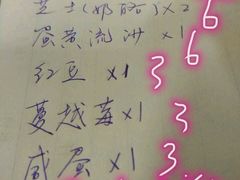 芝士(奶酪)×2 6
蛋黄流沙×1 6
红豆×1 3
蔓越莓×1 3
咸蛋×1 3